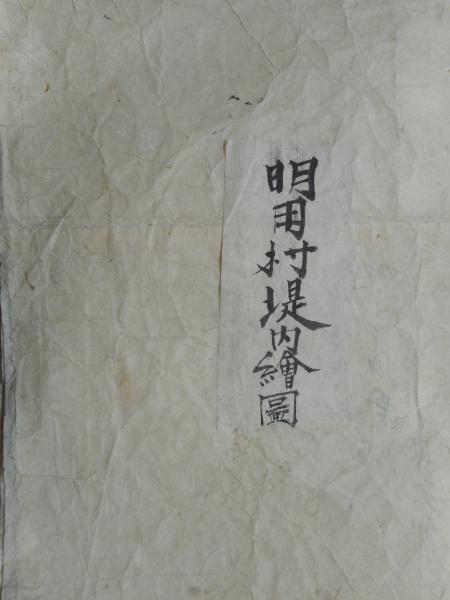 明用村堤内繪圖